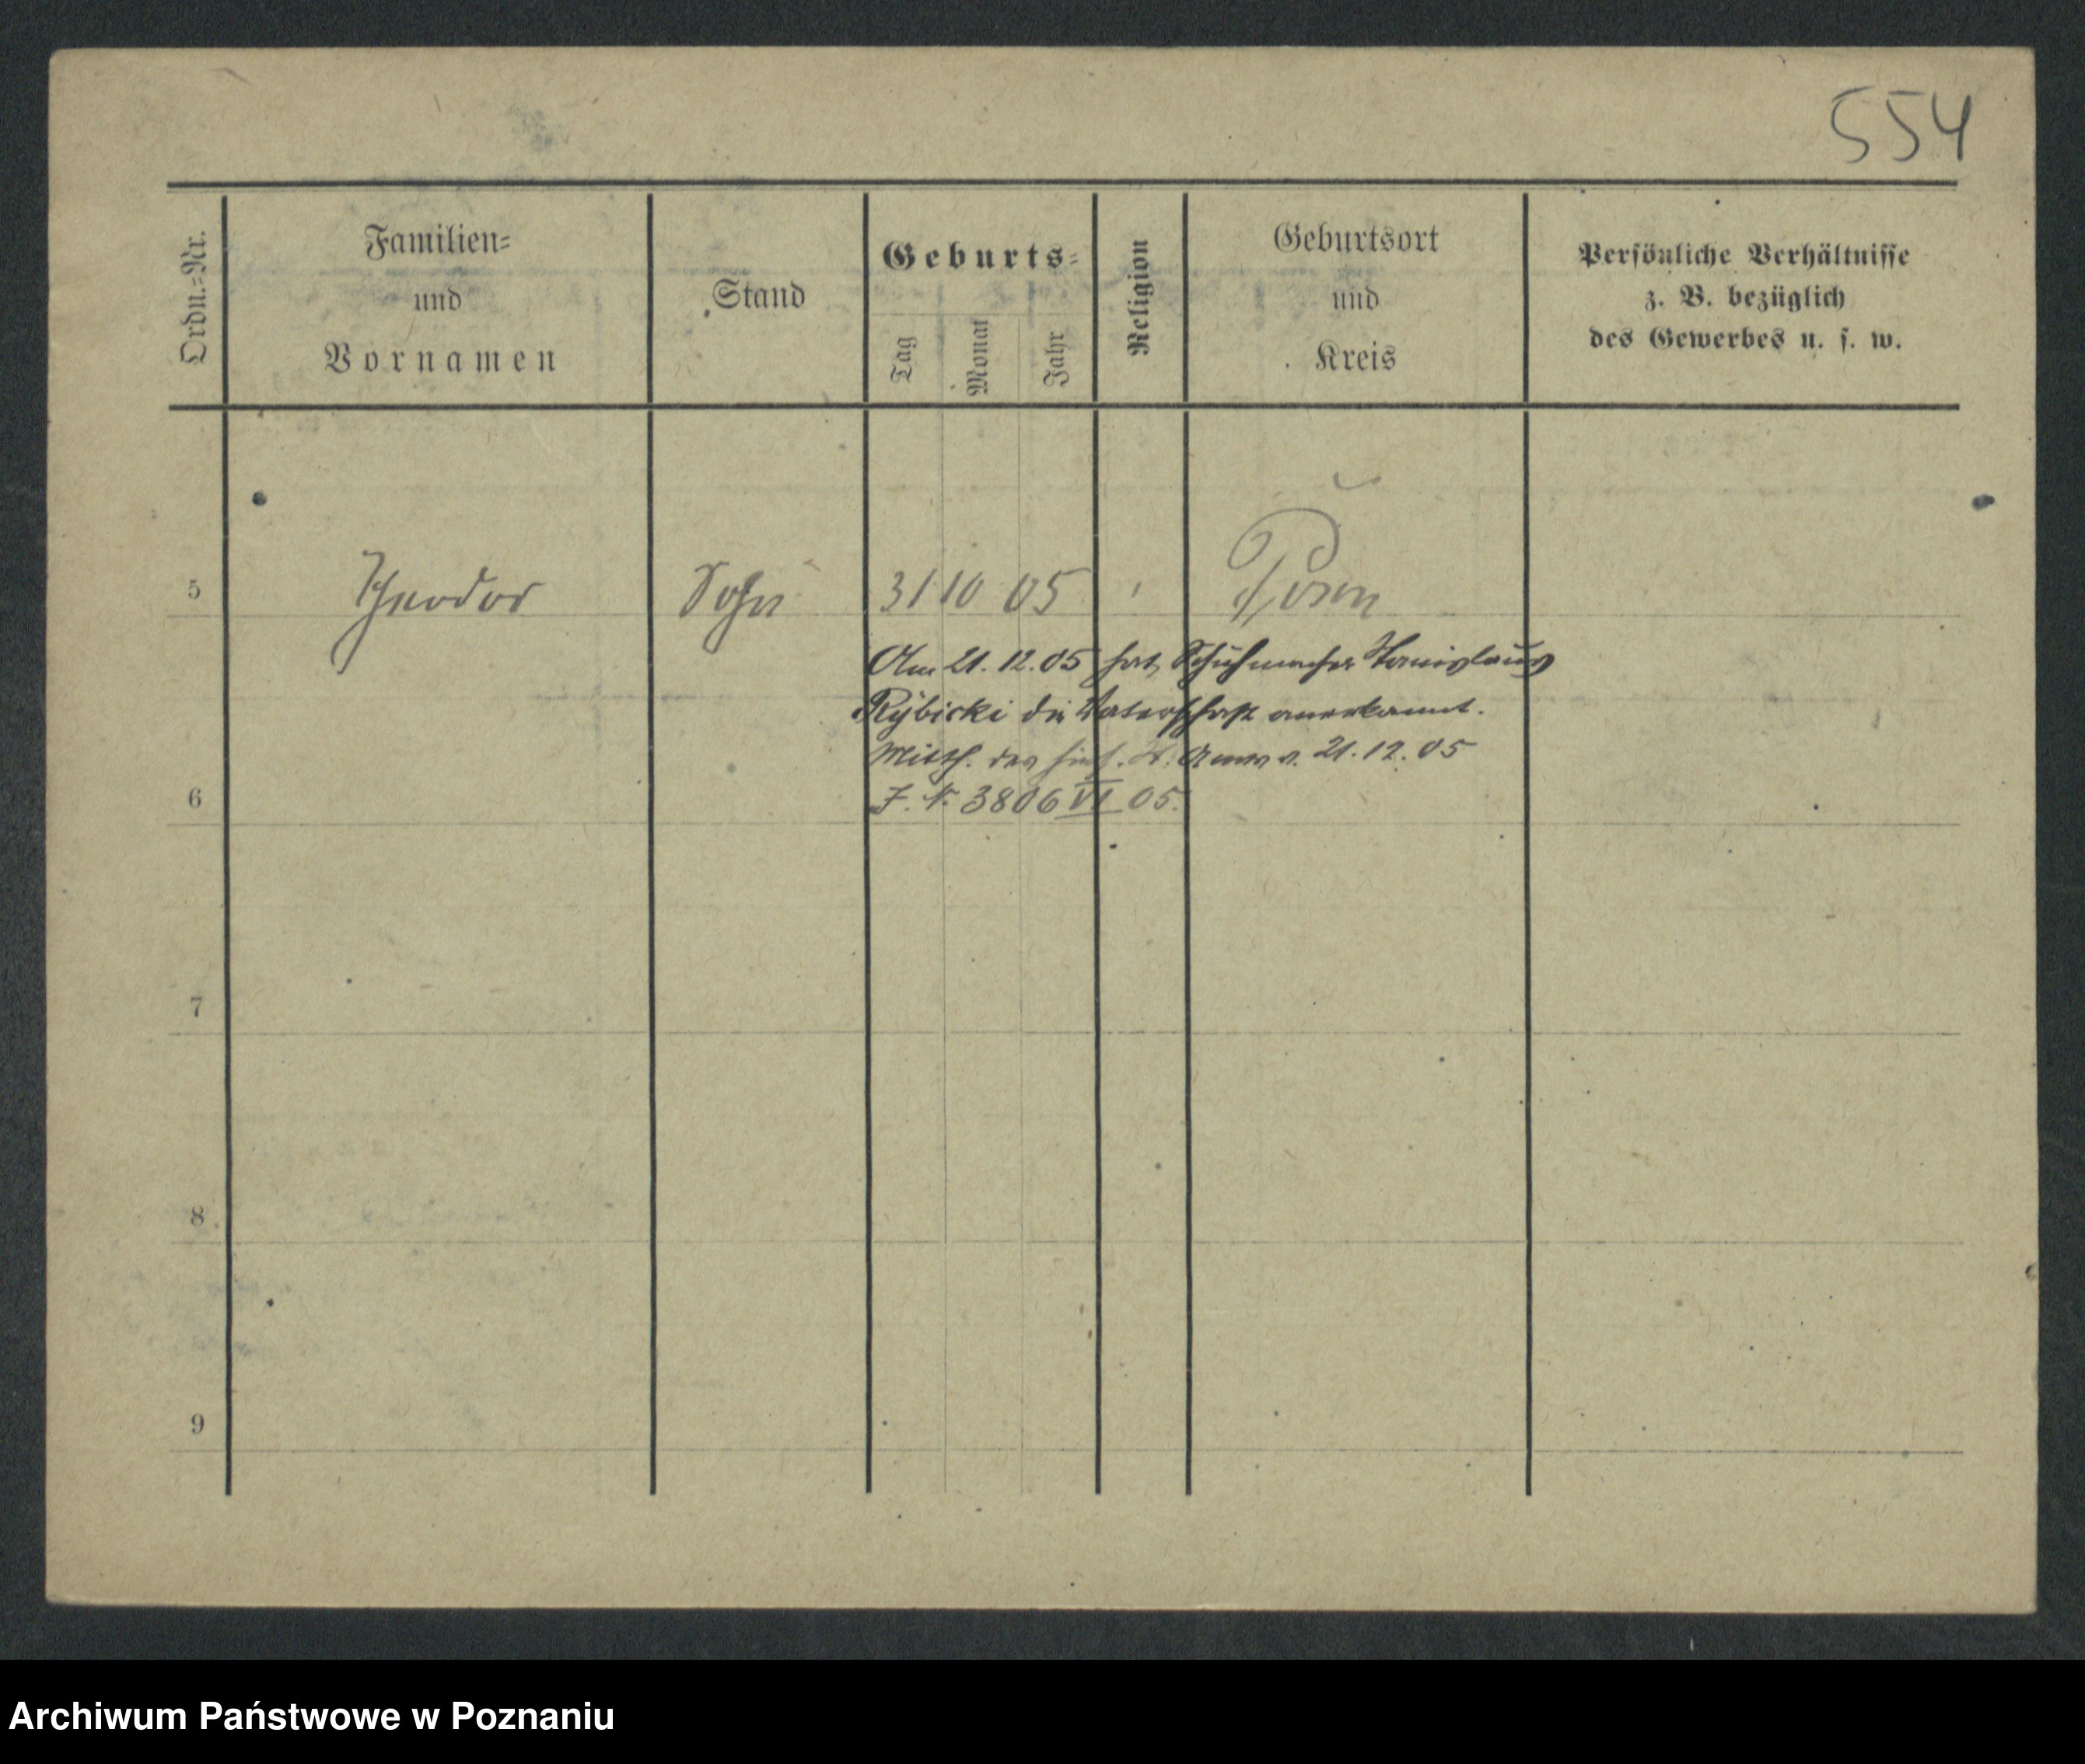 554
Ordn.=Nr.
Familien=
und
Vornamen
Stand
Geburts=
Tag
Monat
Jahr
Religion
Geburtsort
und
Kreis
Persönliche Verhältnisse
z. B. bezüglich
des Gewerbes u. s. w.
5 Theodor Sohn 31 10 05 Posen
Am 21.12.05 hat Schuhmacher Stanislaus
Rybicki die Vaterschaft anerkannt.
Mitth. des v. 21.12.05
J. N. 3806 VI 05.
6
7
8
9
Archiwum Państwowe w Poznaniu